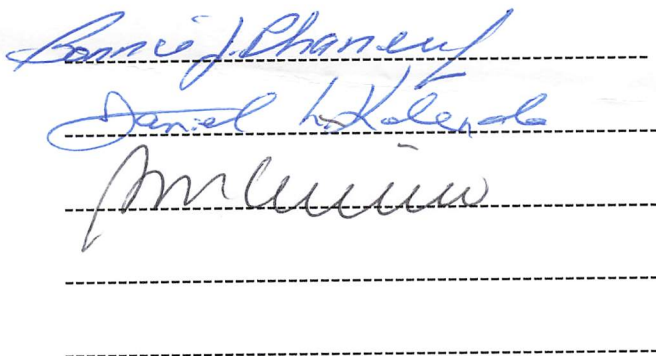 Bonnie J. Phaneuf
Daniel L. Kolenda